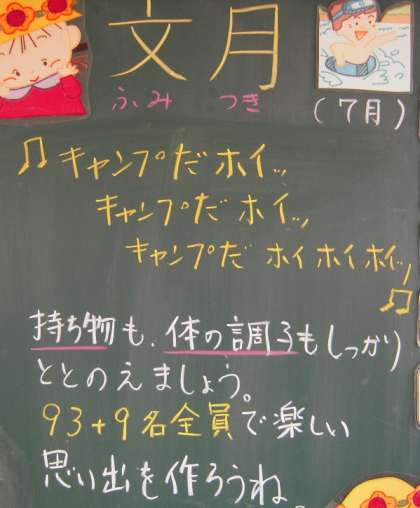 文月
ふみ つき
(7月)
♫ キャンプだ ホイッ
キャンプだ ホイッ
キャンプだ ホイ ホイ ホイッ ♫
持ち物も、体の調子もしっかり
ととのえましょう。
93+9名全員で楽しい
思い出を作ろうね。